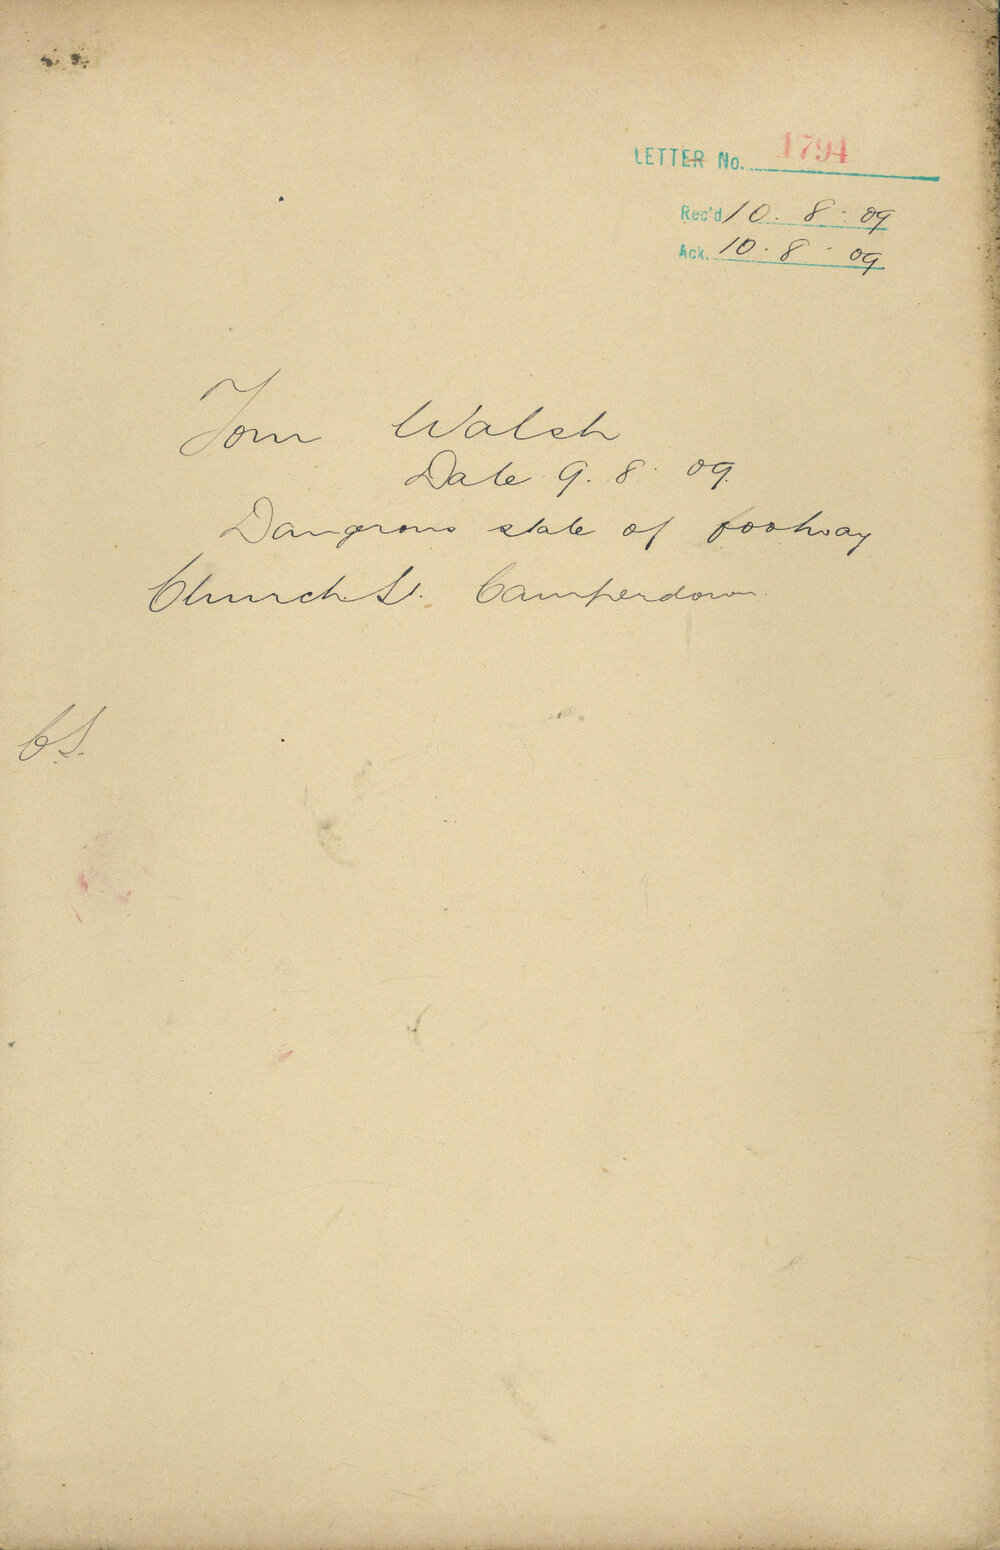 LETTER No. 1794
Rec'd 10. 8. 09
Ack. 10. 8. 09
Tom Walsh
Date 9. 8. 09.
Dangerous state of footway
Church St. Camperdown.
CS.